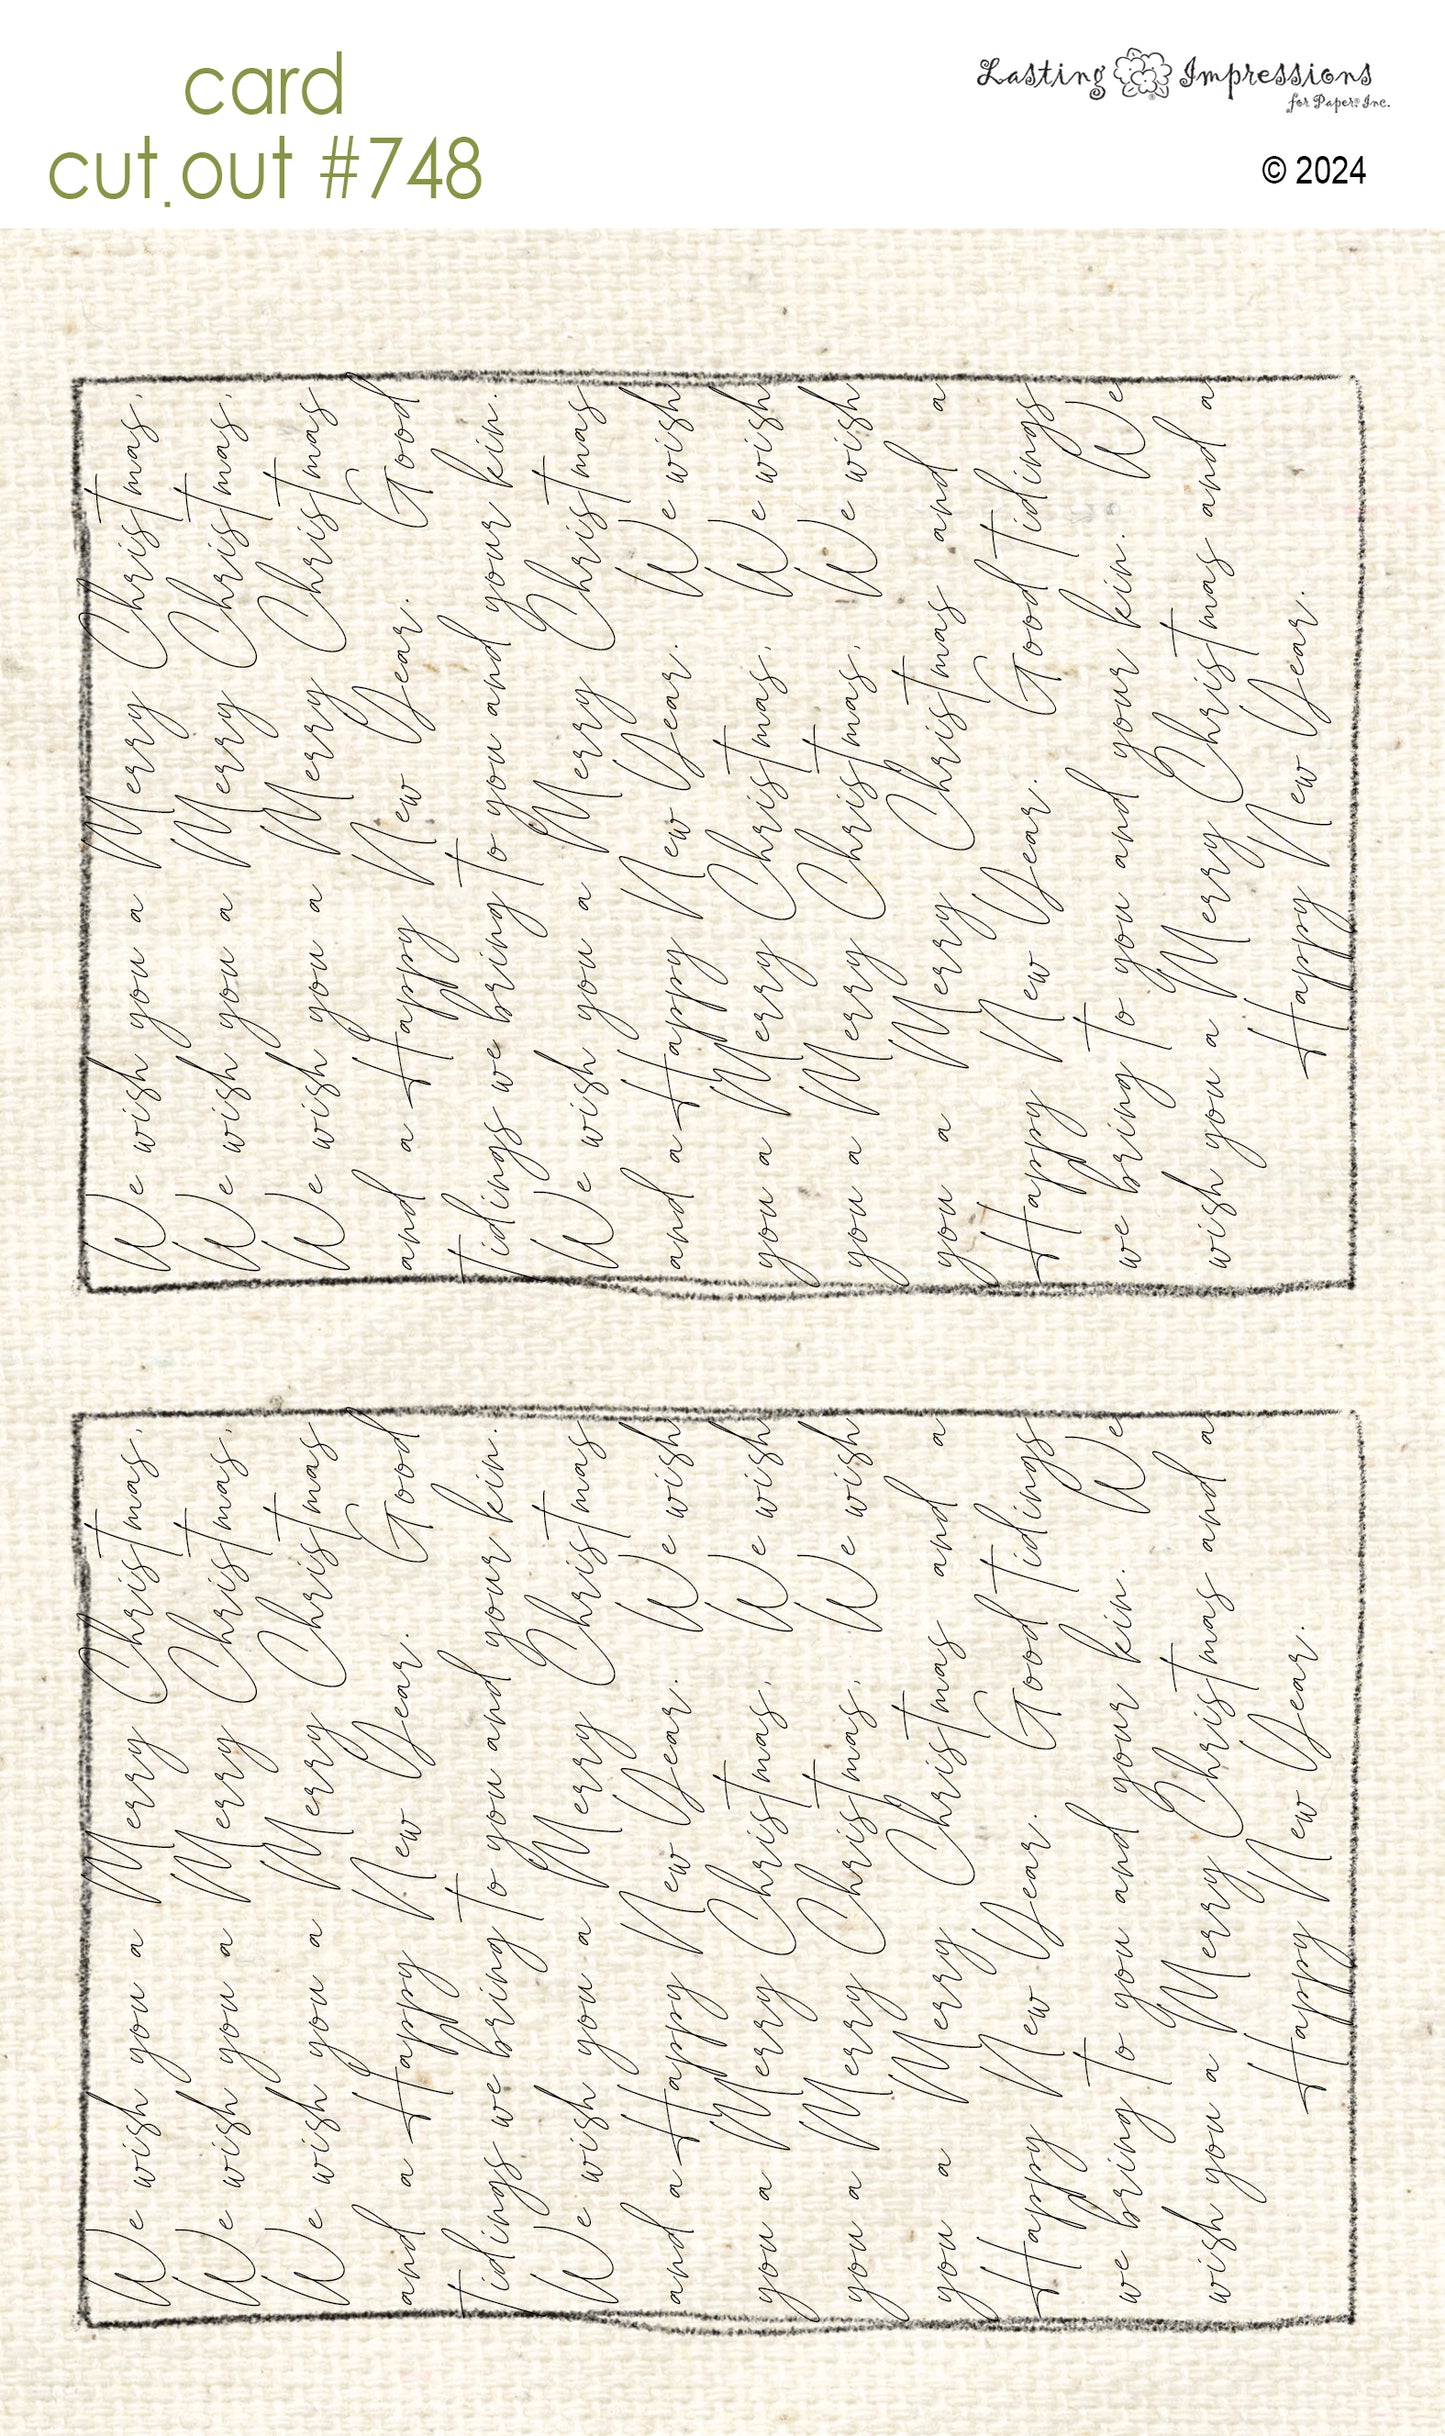 card
cut.out #748
Lasting Impressions
for Paper, Inc.
© 2024
We wish you a Merry Christmas.
We wish you a Merry Christmas.
We wish you a Merry Christmas
and a Happy New Year. Good
Tidings we bring to you and your kin.
We wish you a Merry Christmas
and a Happy New Year. We wish
you a Merry Christmas. We wish
you a Merry Christmas. We wish
you a Merry Christmas and a
Happy New Year. Good Tidings
we bring to you and your kin. We
wish you a Merry Christmas and a
Happy New Year.
We wish you a Merry Christmas.
We wish you a Merry Christmas.
We wish you a Merry Christmas
and a Happy New Year. Good
Tidings we bring to you and your kin.
We wish you a Merry Christmas
and a Happy New Year. We wish
you a Merry Christmas. We wish
you a Merry Christmas. We wish
you a Merry Christmas and a
Happy New Year. Good Tidings
we bring to you and your kin. We
wish you a Merry Christmas and a
Happy New Year.